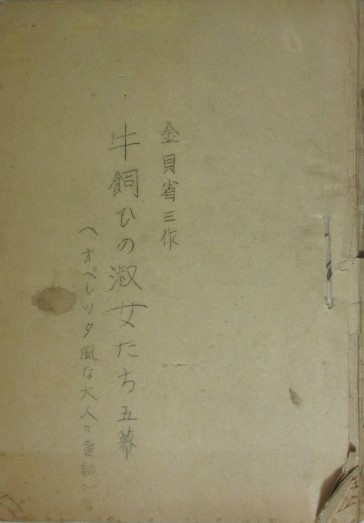 金貝省三作
牛飼ひの淑女たち五幕
(オペレッタ風な大人の童話)